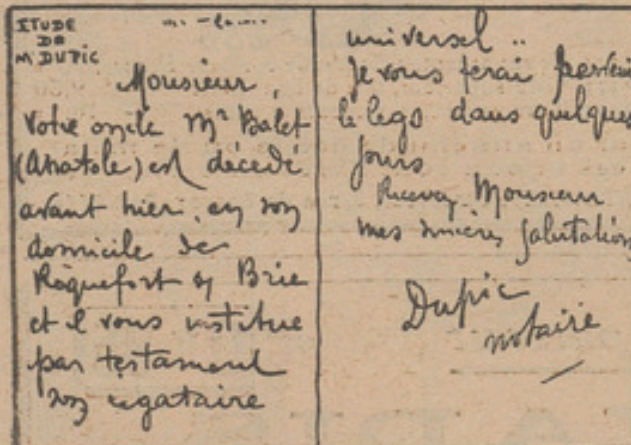 ETUDE
DE
Mᵉ DUPIC
Monsieur
Votre oncle Mʳ Balet
(Anatole) est décédé
avant hier, en son
domicile de
Roquefort en Brie
et il vous institue
par testament
son légataire
universel ..
Je vous ferai parvenir
le legs dans quelques
jours
Recevez Monsieur
mes sincères salutations
Dupic
notaire